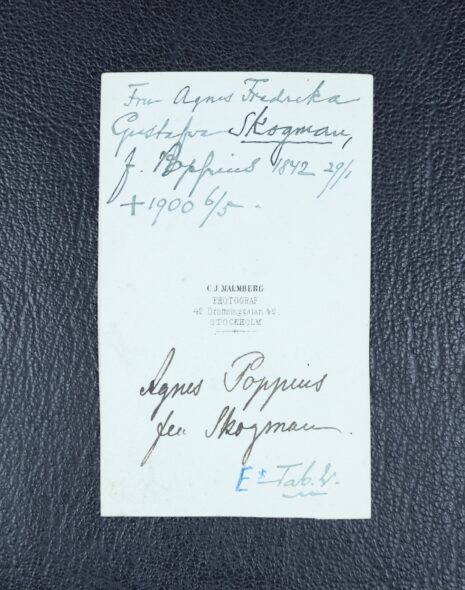 Fru Agnes Fredrika
Gustafva Skogman,
f. Poppius 1842 29/1
+ 1900 6/5.
C.J. MALMBERG
FOTOGRAF
42 Drottninggatan 42.
STOCKHOLM
Agnes Poppius
Skogman.
E* Tab.